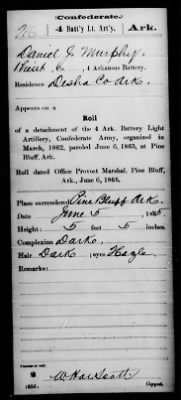 Confederate.
4 Batt'y Lt. Art'y. Ark.
Daniel J Murphy.
, 4 Arkansas Battery.
Residence Desha Co Ark.
Appears on a
Roll
of a detachment of the 4 Ark. Battery Light
Artillery, Confederate Army, organized in
March, 1862, paroled June 6, 1865, at Pine
Bluff, Ark.
Roll dated Office Provost Marshal, Pine Bluff,
Ark., June 6, 1865.
Place surrendered Pine Bluff Ark.
Date June 5, 1865.
Height: 5 feet 5 inches.
Complexion Dark.
Hair Dark, eyes Hazle
Remarks:
Number of roll:
Copyist.